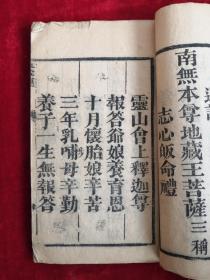 南無本尊地藏王菩薩三稱
志心皈命禮
靈山會上釋迦尊
報答爺娘養育恩
十月懷胎娘辛苦
三年乳哺母辛勤
養子一生無報答